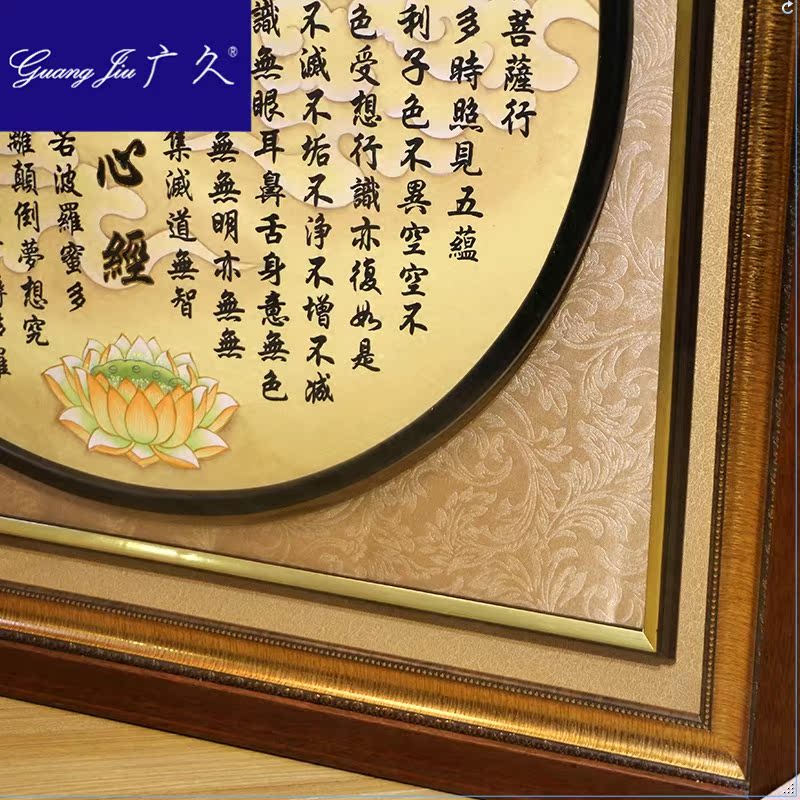 Guang Jiu 广久®
菩薩行
多時照見五蘊
利子色不異空空不
色受想行識亦復如是
不滅不垢不淨不增不減
識無眼耳鼻舌身意無色
無無明亦無無
集滅道無智
心經
若波羅蜜多
離顛倒夢想究
羅